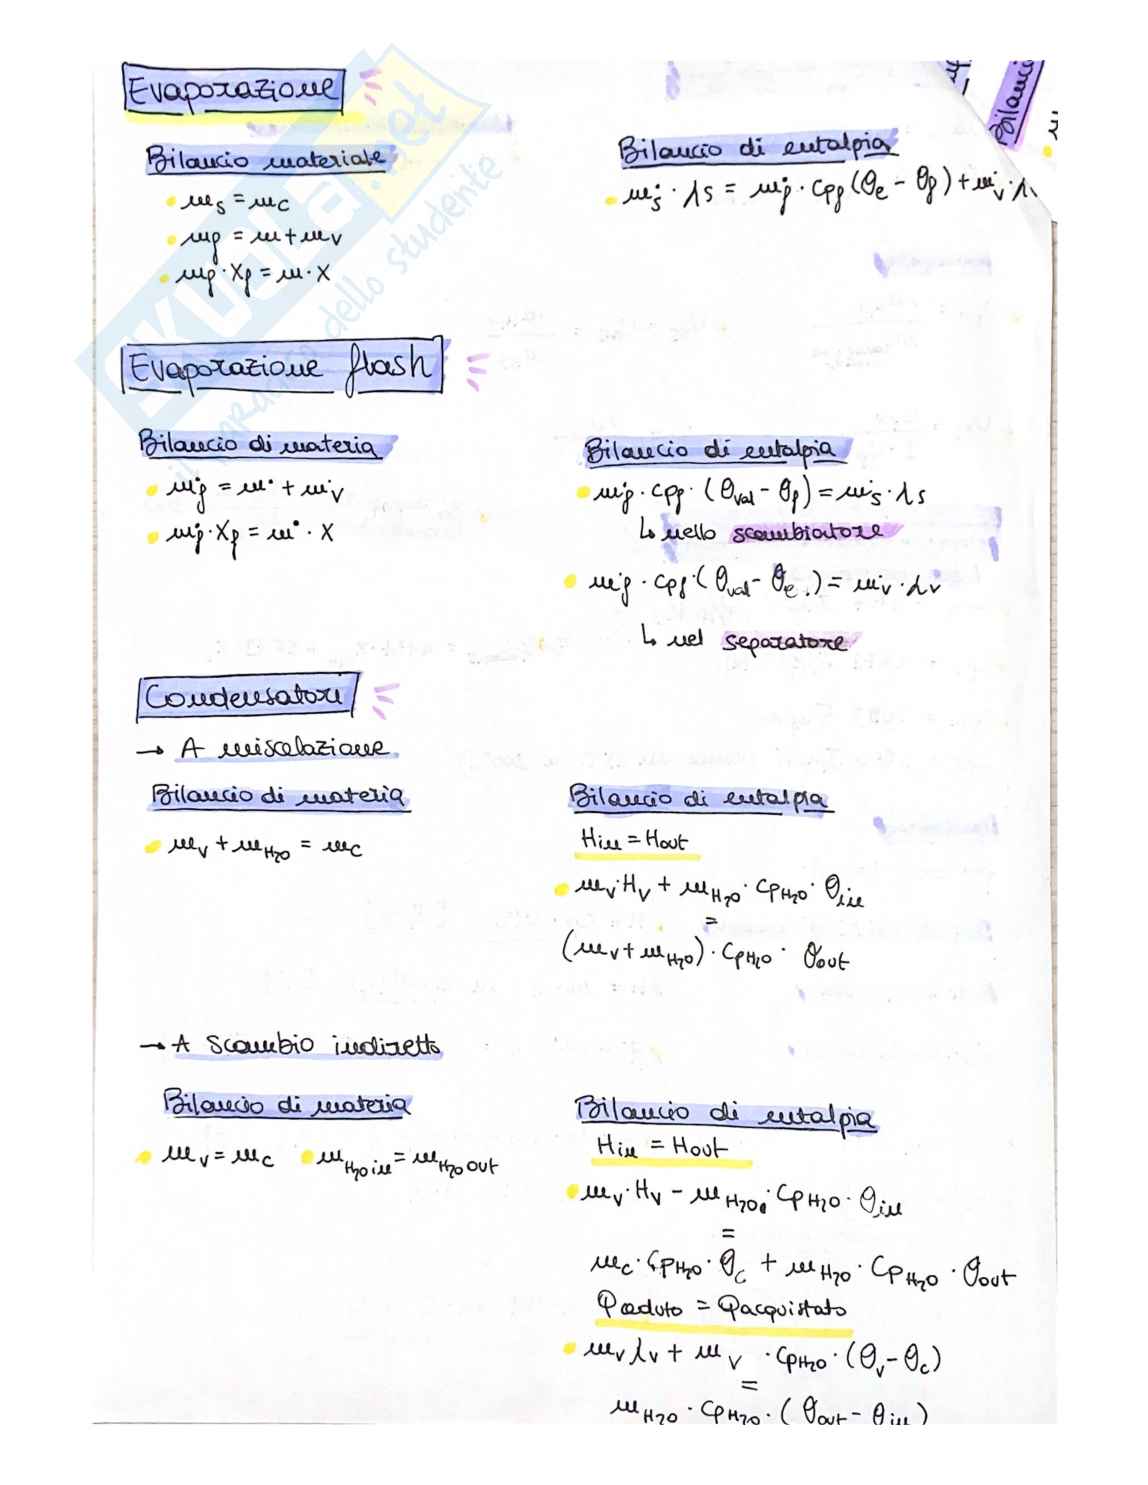 Evaporazione
Bilancio materiale
• ms = mc
• mf = m + mv
• mf · Xf = m · X
Bilancio di entalpia
• ṁs · λs = ṁf · cpf (θe - θf) + ṁv · λv
Evaporazione flash
Bilancio di materia
• ṁf = ṁ + ṁv
• ṁf · Xf = ṁ · X
Bilancio di entalpia
• ṁf · cpf · (θval - θf) = ṁs · λs
↳ nello scambiatore
• ṁf · cpf · (θval - θe) = ṁv · λv
↳ nel separatore
Condensatori
→ A miscelazione
Bilancio di materia
• mv + mH2O = mc
Bilancio di entalpia
Hin = Hout
• mv · Hv + mH2O · cpH2O · θin
=
(mv + mH2O) · cpH2O · θout
→ A scambio indiretto
Bilancio di materia
• mv = mc • mH2O in = mH2O out
Bilancio di entalpia
Hin = Hout
• mv · Hv - mH2O · cpH2O · θin
=
mc · cpH2O · θc + mH2O · cpH2O · θout
Qceduto = Qacquistato
• mv λv + mv · cpH2O · (θv - θc)
=
mH2O · cpH2O · (θout - θin)
SKUOLA.net
il paradiso dello studente